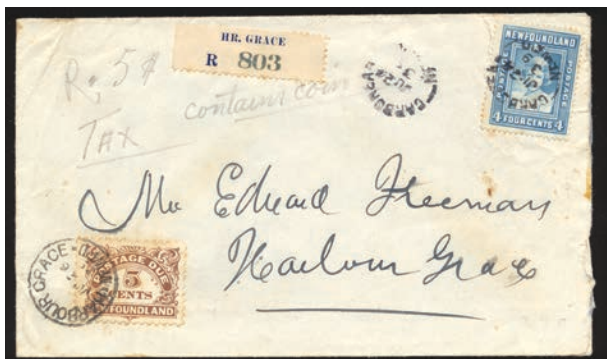 HR. GRACE
R 803
R. 5¢
contains coin
Tax
CARBONEAR
NEWFOUNDLAND
POSTAGE
4 FOUR CENTS 4
Mr Edward Freeman
Harbour Grace
HARBOUR GRACE
POSTAGE DUE
5
CENTS
NEWFOUNDLAND